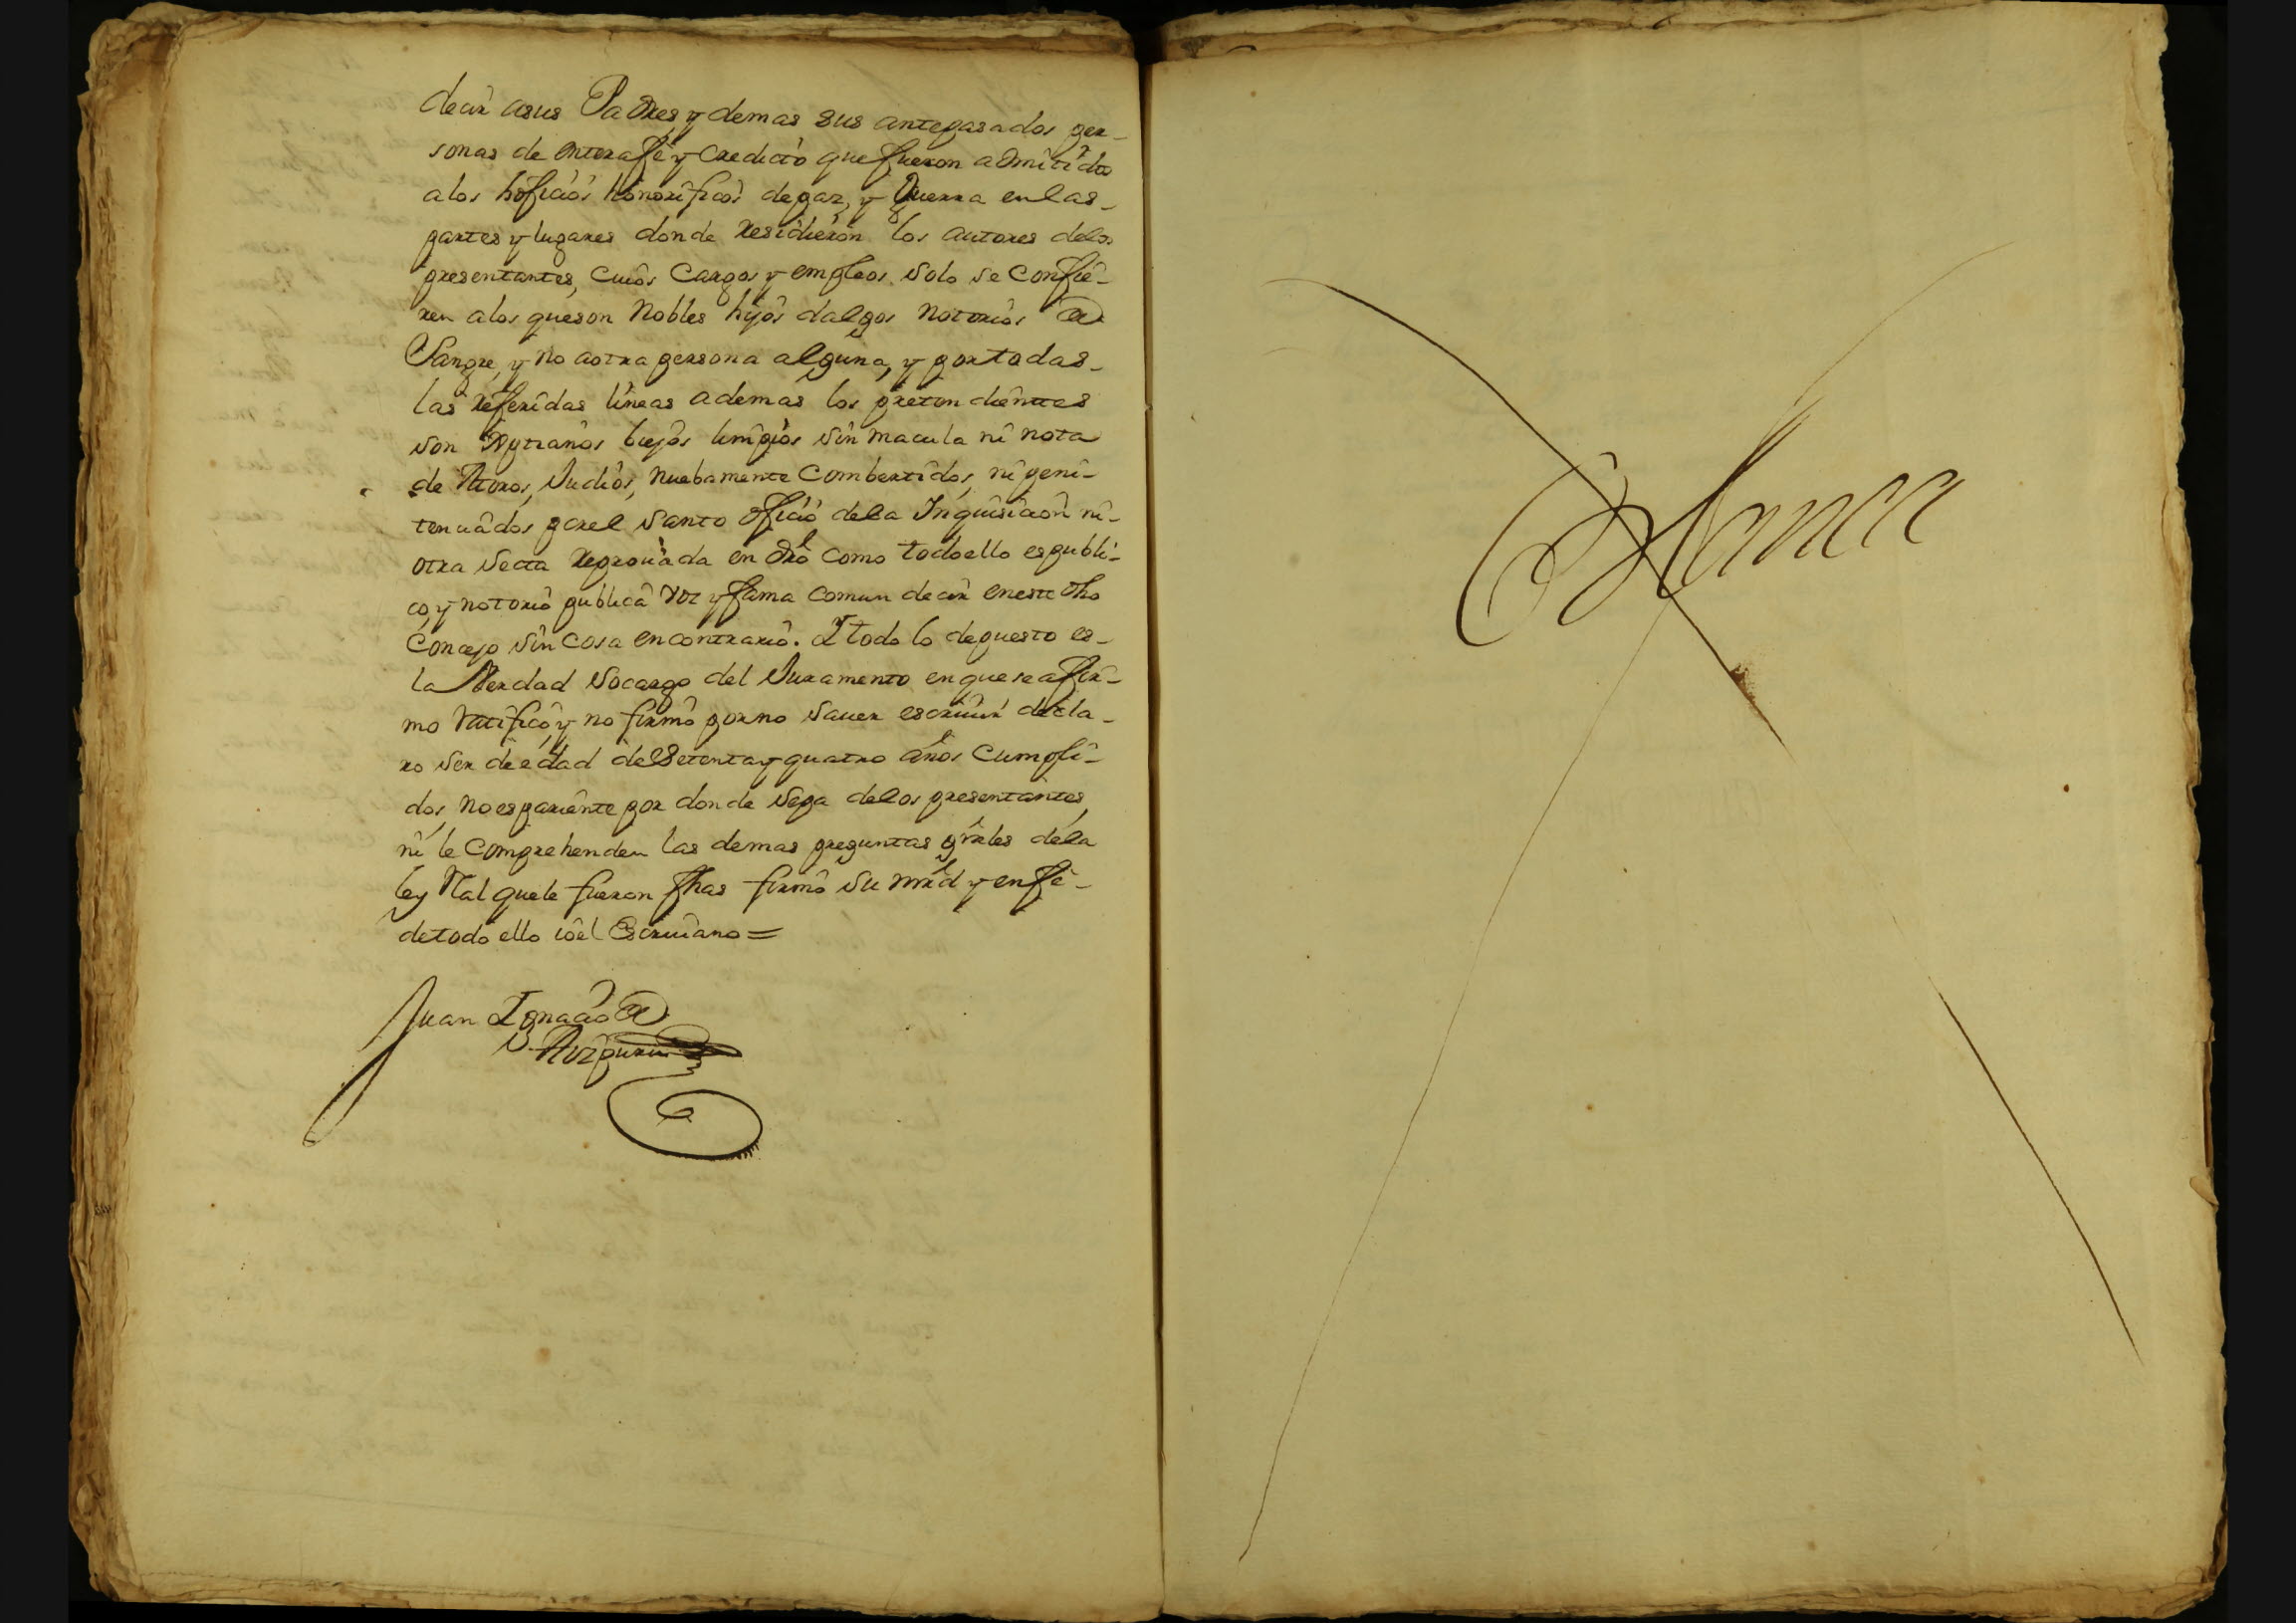 decir asus Padres y demas sus antepasados per-
sonas de entera fe y credicto que fueron admitidos
a los hoficios honorificos de paz, y Guerra en las-
partes y lugares donde residieron los autores de los
presentantes, cuios cargos y empleos solo se confie-
ren a los que son Nobles hijos dalgos Notorios de
Sangre, y no a otra persona alguna, y por todas-
las referidas lineas ademas los pretendientes
son xptianos biejos limpios sin macula ni nota
de Moros, Judios, nuebamente combertidos, ni peni-
tenciados por el santo oficio de la Inquisicion ni-
otra secta reprouada en dro como todo ello es publi-
co, y notorio publica voz y fama comun decir en este dho
Concejo sin cosa en contrario. I todo lo depuesto es-
la Verdad socargo del Juramento en que se afir-
mo ratificó, y no firmó por no sauer escriuir decla-
ro ser de edad de Setenta y quatro años cumpli-
dos, no es pariente por donde sepa de los presentantes,
ni le comprehenden las demas preguntas grâles de la
ley Rl al que le fueron fhas firmó su mrd y en fe-
de todo ello io el Escriuano =
Juan Ignacio de
Blanca